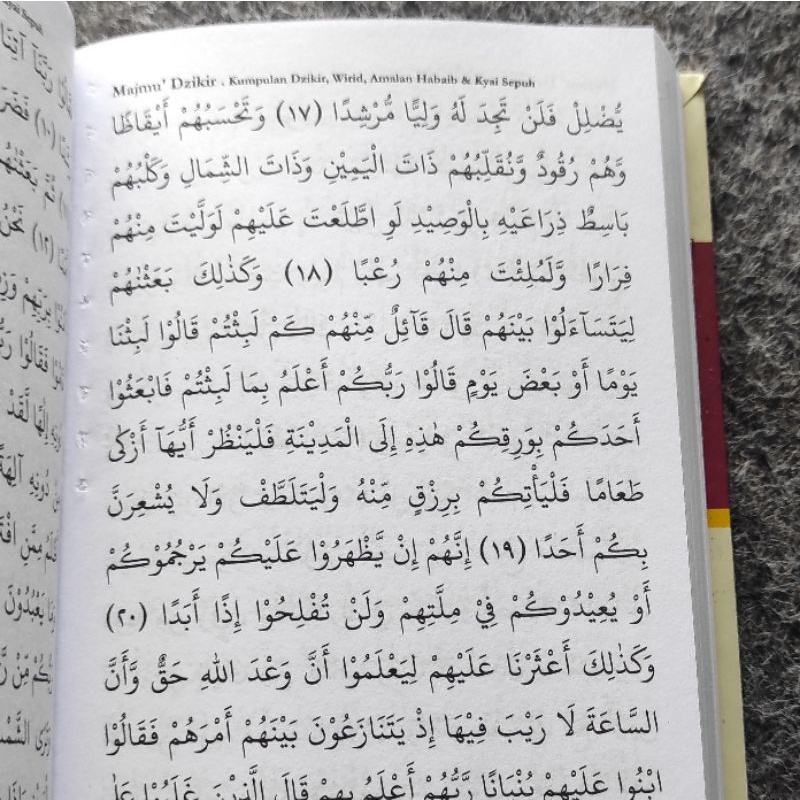 Majmu' Dzikir . Kumpulan Dzikir, Wirid, Amalan Habaib & Kyai Sepuh
يُضْلِلْ فَلَنْ تَجِدَ لَهُ وَلِيًّا مُّرْشِدًا (١٧) وَتَحْسَبُهُمْ أَيْقَاظًا
وَّهُمْ رُقُودٌ وَّنُقَلِّبُهُمْ ذَاتَ الْيَمِيْنِ وَذَاتَ الشِّمَالِ وَكَلْبُهُمْ
بَاسِطٌ ذِرَاعَيْهِ بِالْوَصِيْدِ لَوِ اطَّلَعْتَ عَلَيْهِمْ لَوَلَّيْتَ مِنْهُمْ
فِرَارًا وَّلَمُلِئْتَ مِنْهُمْ رُعْبًا (١٨) وَكَذٰلِكَ بَعَثْنٰهُمْ
لِيَتَسَآءَلُوْا بَيْنَهُمْ قَالَ قَآئِلٌ مِّنْهُمْ كَمْ لَبِثْتُمْ قَالُوْا لَبِثْنَا
يَوْمًا أَوْ بَعْضَ يَوْمٍ قَالُوْا رَبُّكُمْ أَعْلَمُ بِمَا لَبِثْتُمْ فَابْعَثُوْا
أَحَدَكُمْ بِوَرِقِكُمْ هٰذِهِ إِلَى الْمَدِيْنَةِ فَلْيَنْظُرْ أَيُّهَآ أَزْكٰى
طَعَامًا فَلْيَأْتِكُمْ بِرِزْقٍ مِّنْهُ وَلْيَتَلَطَّفْ وَلَا يُشْعِرَنَّ
بِكُمْ أَحَدًا (١٩) إِنَّهُمْ إِنْ يَّظْهَرُوْا عَلَيْكُمْ يَرْجُمُوْكُمْ
أَوْ يُعِيْدُوْكُمْ فِيْ مِلَّتِهِمْ وَلَنْ تُفْلِحُوْا إِذًا أَبَدًا (٢٠)
وَكَذٰلِكَ أَعْثَرْنَا عَلَيْهِمْ لِيَعْلَمُوْا أَنَّ وَعْدَ اللهِ حَقٌّ وَّأَنَّ
السَّاعَةَ لَا رَيْبَ فِيْهَا إِذْ يَتَنَازَعُوْنَ بَيْنَهُمْ أَمْرَهُمْ فَقَالُوْا
ابْنُوْا عَلَيْهِمْ بُنْيَانًا رَّبُّهُمْ أَعْلَمُ بِهِمْ قَالَ الَّذِيْنَ غَلَبُوْا